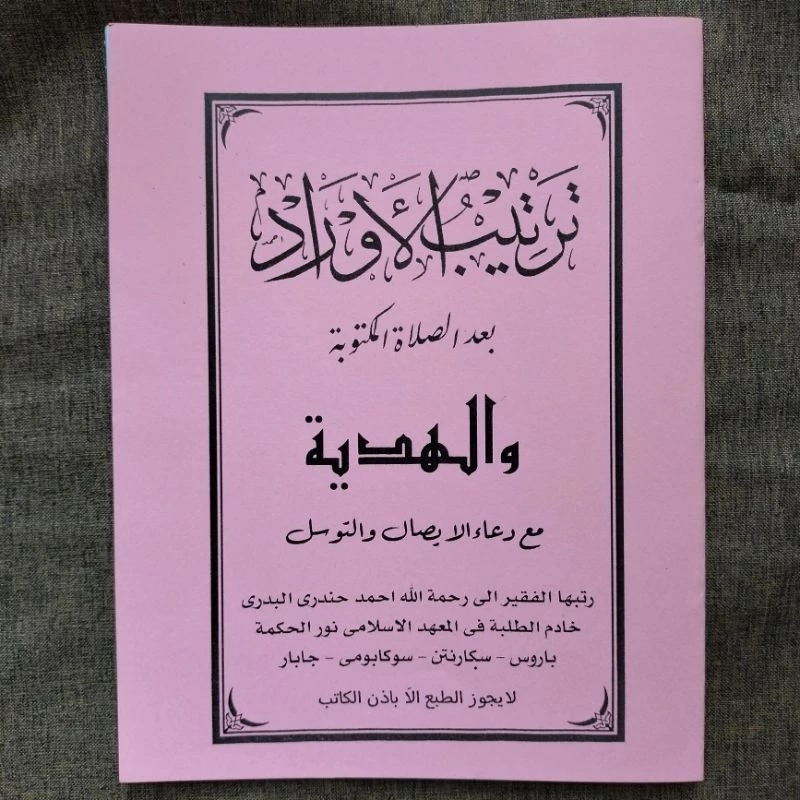 تَرْتِيبُ الأَوْرَادِ
بعد الصلاة المكتوبة
والهدية
مع دعاء الايصال والتوسل
رتبها الفقير الى رحمة الله احمد حندرى البدرى
خادم الطلبة فى المعهد الاسلامى نور الحكمة
باروس - سكارنتن - سوكابومى - جابار
لا يجوز الطبع الا باذن الكاتب